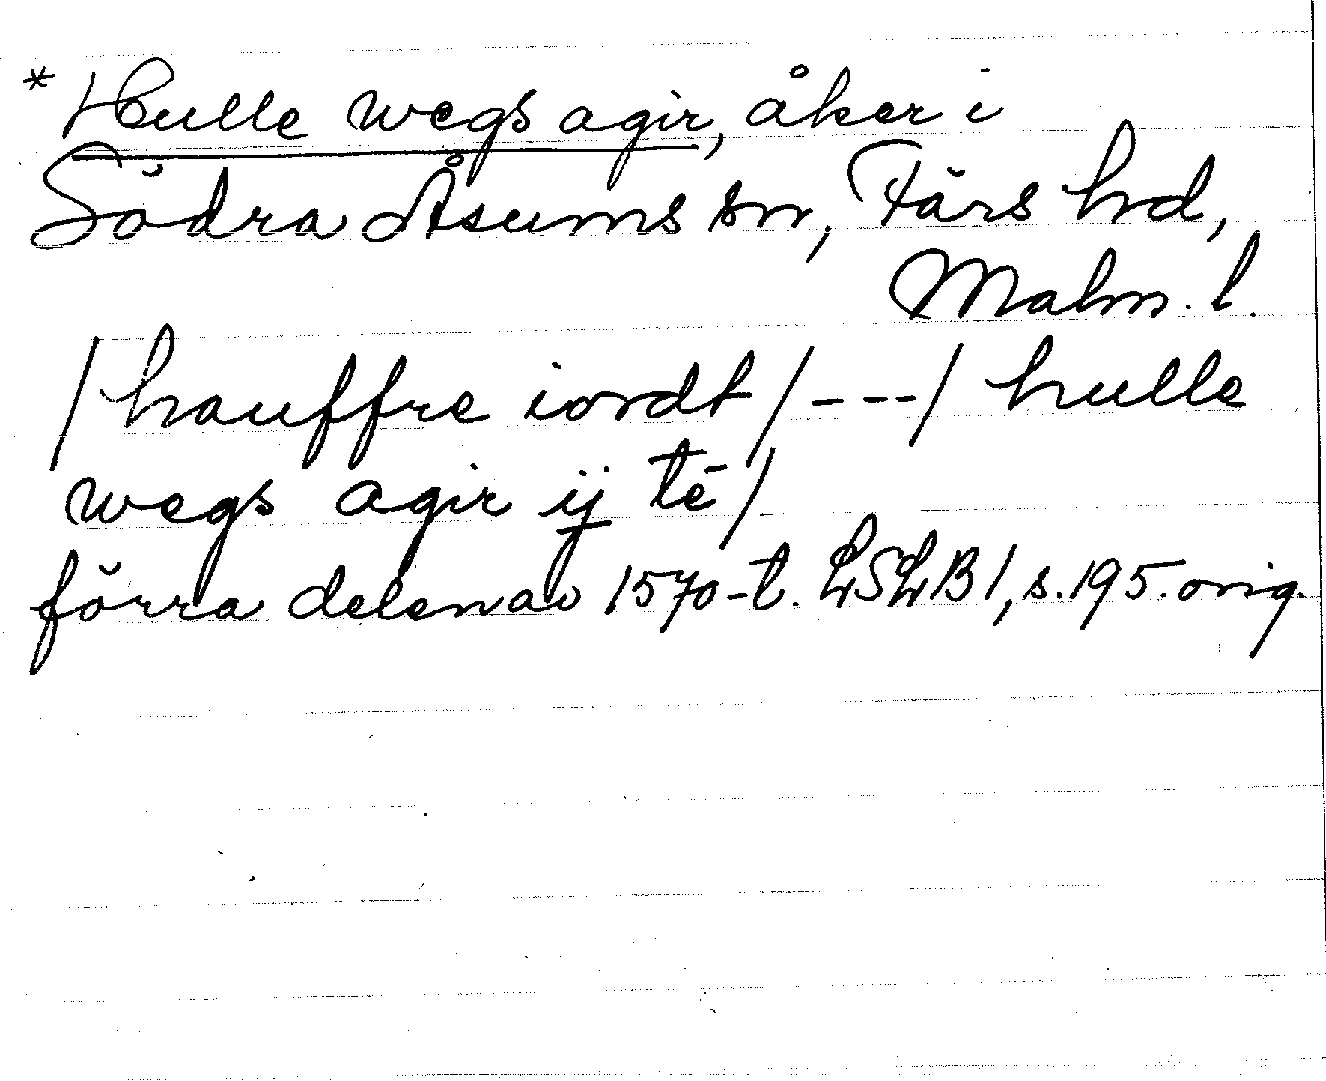 * Hulle wegs agir, åker i
Södra Åsums sn, Färs hd,
Malm. l.
/ hauffre iordt / --- / hulle
wegs agir ij tē /
förra delen av 1570-t. LSLB 1, s. 195. orig.